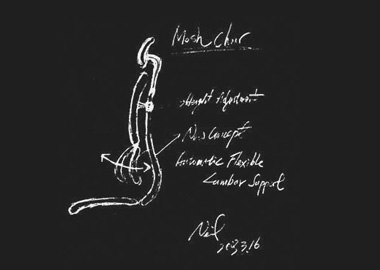 Mesh Chair
Height Adjustment
New Concept
Automatic Flexible
Lumbar Support
Neil
2023.3.16